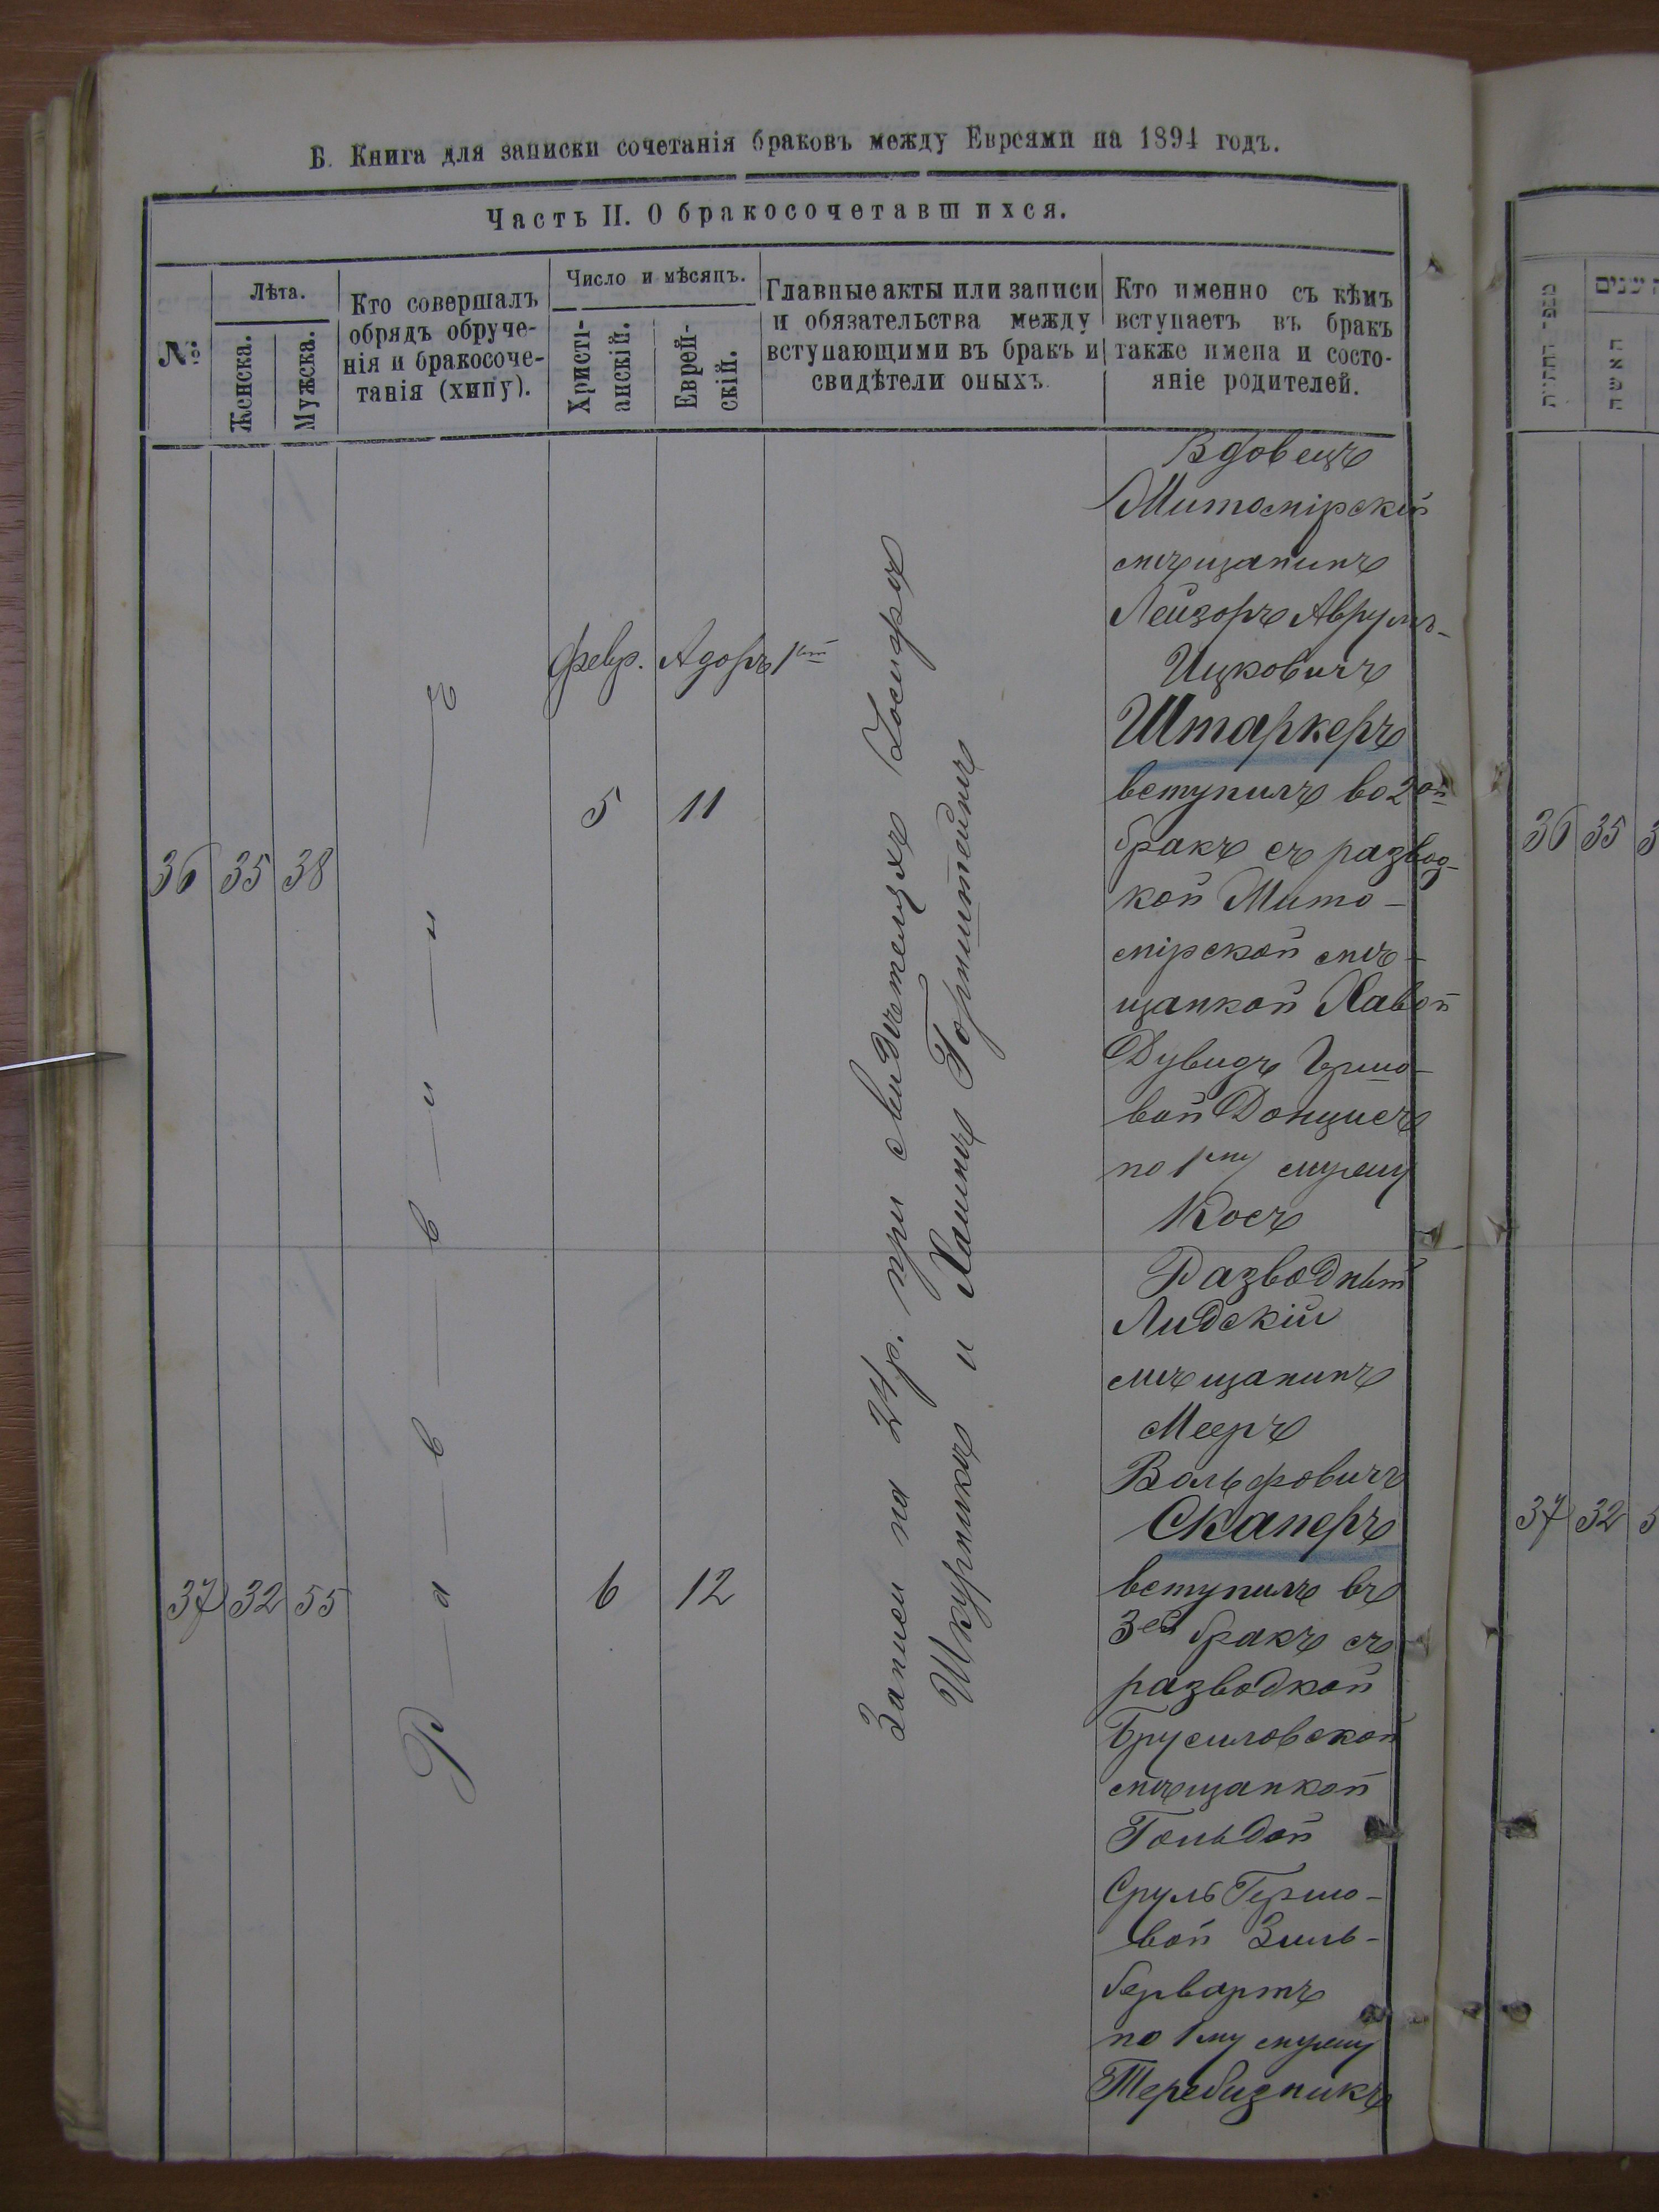 Б. Книга для записки сочетанія браковъ между Евреями на 1894 годъ.
Часть II. О бракосочетавшихся.
№
Лѣта.
Женска.
Мужска.
Кто совершалъ
обрядъ обруче-
нія и бракосоче-
танія (хипу).
Число и мѣсяцъ.
Христі-
анскій.
Еврей-
скій.
Главные акты или записи
и обязательства между
вступающими въ бракъ и
свидѣтели оныхъ.
Кто именно съ кѣмъ
вступаетъ въ бракъ
также имена и состо-
яніе родителей.
36 35 38
Р—а—в—в—и—н—ъ
февр. Адоръ 1й
5 11
Записи на 24 р. при свидѣтеляхъ Іосифѣ
Шкурникѣ и Хаимѣ Горнштейнѣ
Вдовецъ
Житомірскій
мѣщанинъ
Лейзоръ Аврумъ-
Ицковичъ
Штаркеръ
вступилъ во 2ой
бракъ съ развод-
кой Жито-
мірской мѣ-
щанкой Хавой
Дувидъ Гершо-
вой Донцисъ
по 1му мужу
Косъ
37 32 55
6 12
Разводный
Лидскій
мѣщанинъ
Мееръ
Вольфовичъ
Скаперъ
вступилъ въ
3ей бракъ съ
разводкой
Брусиловской
мѣщанкой
Гольдой
Сруль Гершо-
вой Зиль-
бервартъ
по 1му мужу
Теребизникъ
36 35 3
37 32 5
האשה